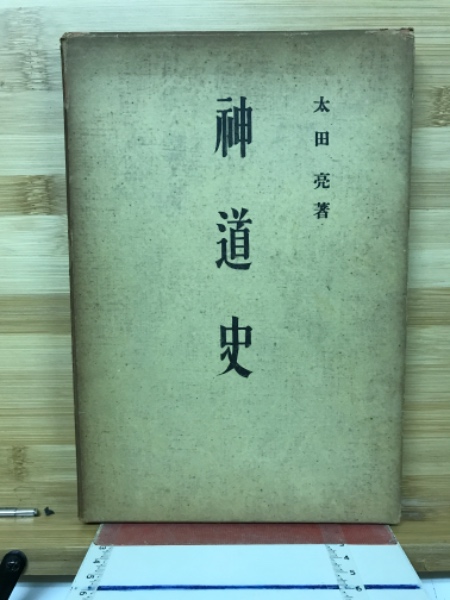 太田亮著
神道史